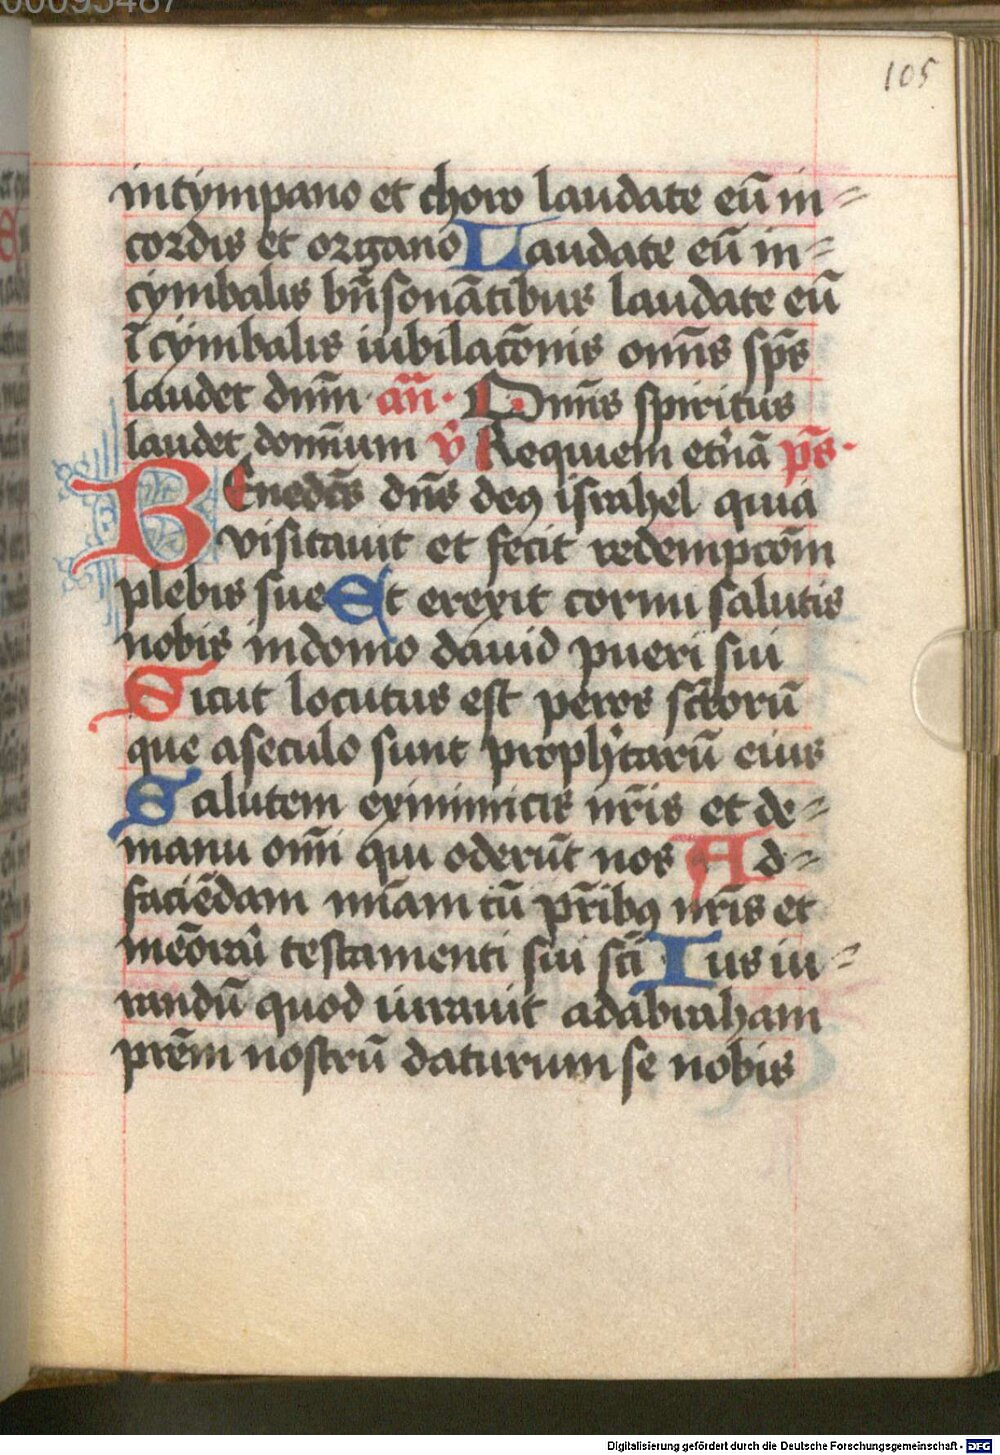 00095487
105
in tympano et choro laudate eū in-
cordis et organo Laudate eū in-
cymbalis bn̄sonātibus laudate eū
ī cymbalis iubilatōnis om̄is sp̄s
laudet dn̄m an̄· Om̄is spiritus
laudet domīnum v̄ Requiem et̓nā ps̄·
BEnedc̄s dn̄s deꝯ israhel quia
visitauit et fecit redemptōm
plebis sue Et erexit cornu salutis
nobis in domo dauid pueri sui
Sicut locutus est per os sc̄torū
que a seculo sunt proph̓tarū eius
Salutem ex inimicis nr̄is et de-
manu om̄i qui oderūt nos Ad-
faciēdam mīam cū pr̄ibꝯ nr̄is et
memōrari testamenti sui sc̄i Ius iu-
randū quod iurauit ad abraham
prēm nostrū daturum se nobis
Digitalisierung gefördert durch die Deutsche Forschungsgemeinschaft - DFG